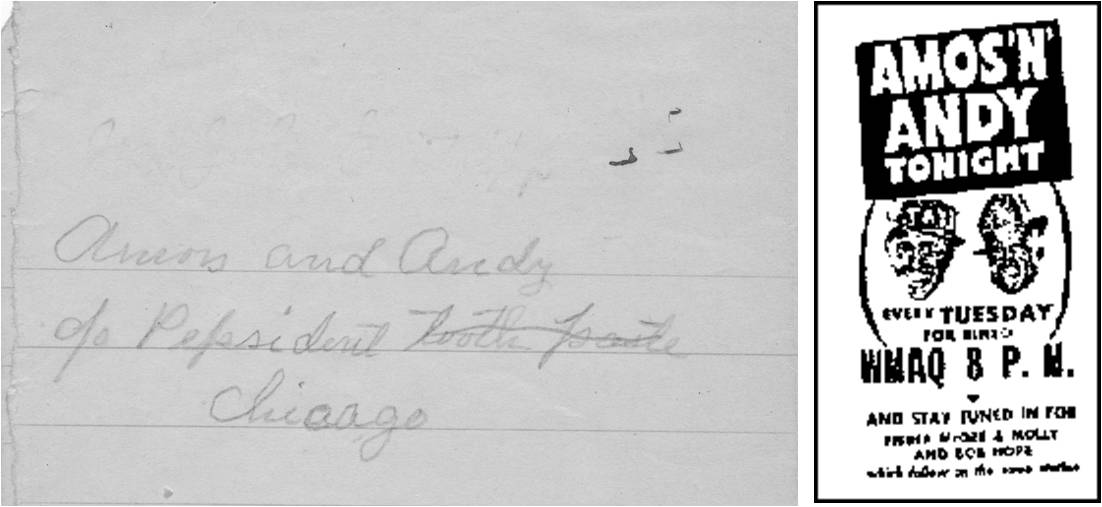 Amos and Andy
c/o Pepsident tooth paste
Chicago
AMOS'N'
ANDY
TONIGHT
EVERY TUESDAY
FOR RINSO
WMAQ 8 P. M.
AND STAY TUNED IN FOR
FIBBER McGEE & MOLLY
AND BOB HOPE
which follow on the same station